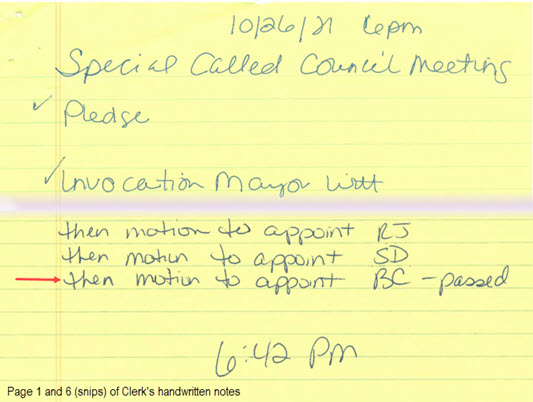 10/26/21 6pm
Special Called Council Meeting
✓ Pledge
✓ Invocation Mayor Witt
then motion to appoint RJ
then motion to appoint SD
then motion to appoint BC - passed
6:42 PM
Page 1 and 6 (snips) of Clerk's handwritten notes